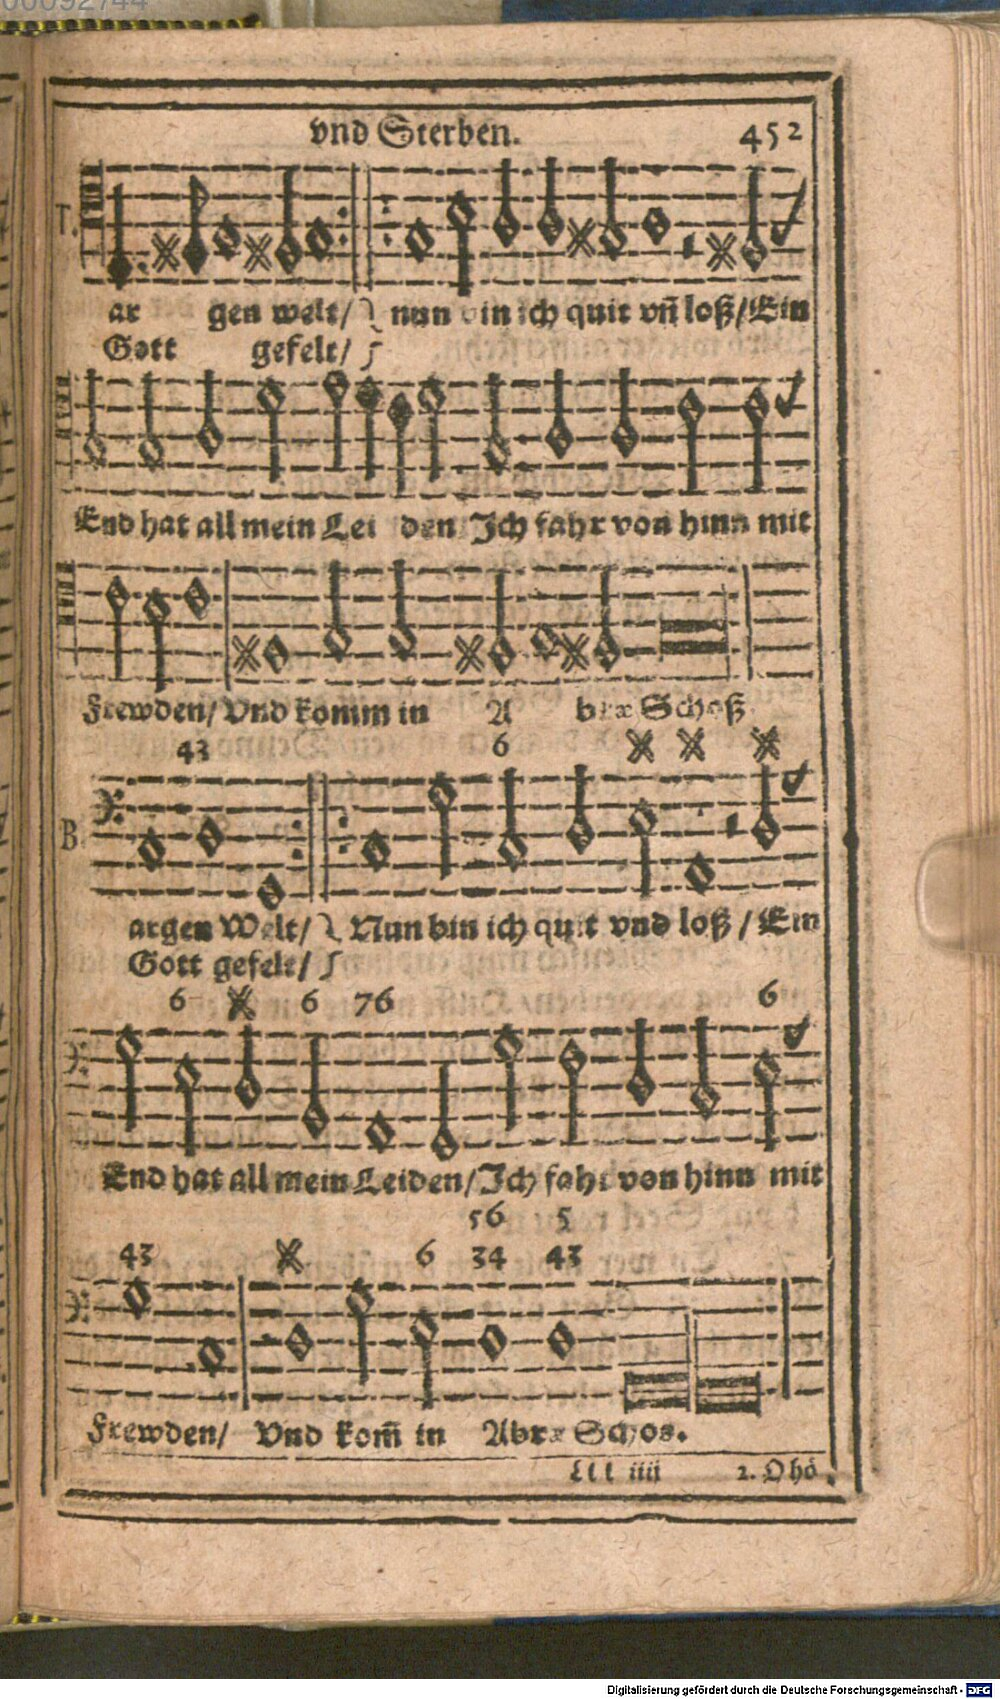 00092744
vnd Sterben. 452
T.
ar gen welt/ nun bin ich quit vñ loß/ Ein
Gott gefelt/
End hat all mein Lei den Ich fahr von hinn mit
Frewden/ Vnd komm in A bræ Schoß
43 6
B.
argen Welt/ Nun bin ich quit vnd loß / Ein
Gott gefelt/
6 6 76 6
End hat all mein Leiden/ Ich fahr von hinn mit
56 5
43 6 34 43
Frewden/ Vnd kom̃ in Abræ Schos.
Lll iiij 2. O hô
Digitalisierung gefördert durch die Deutsche Forschungsgemeinschaft - DFG